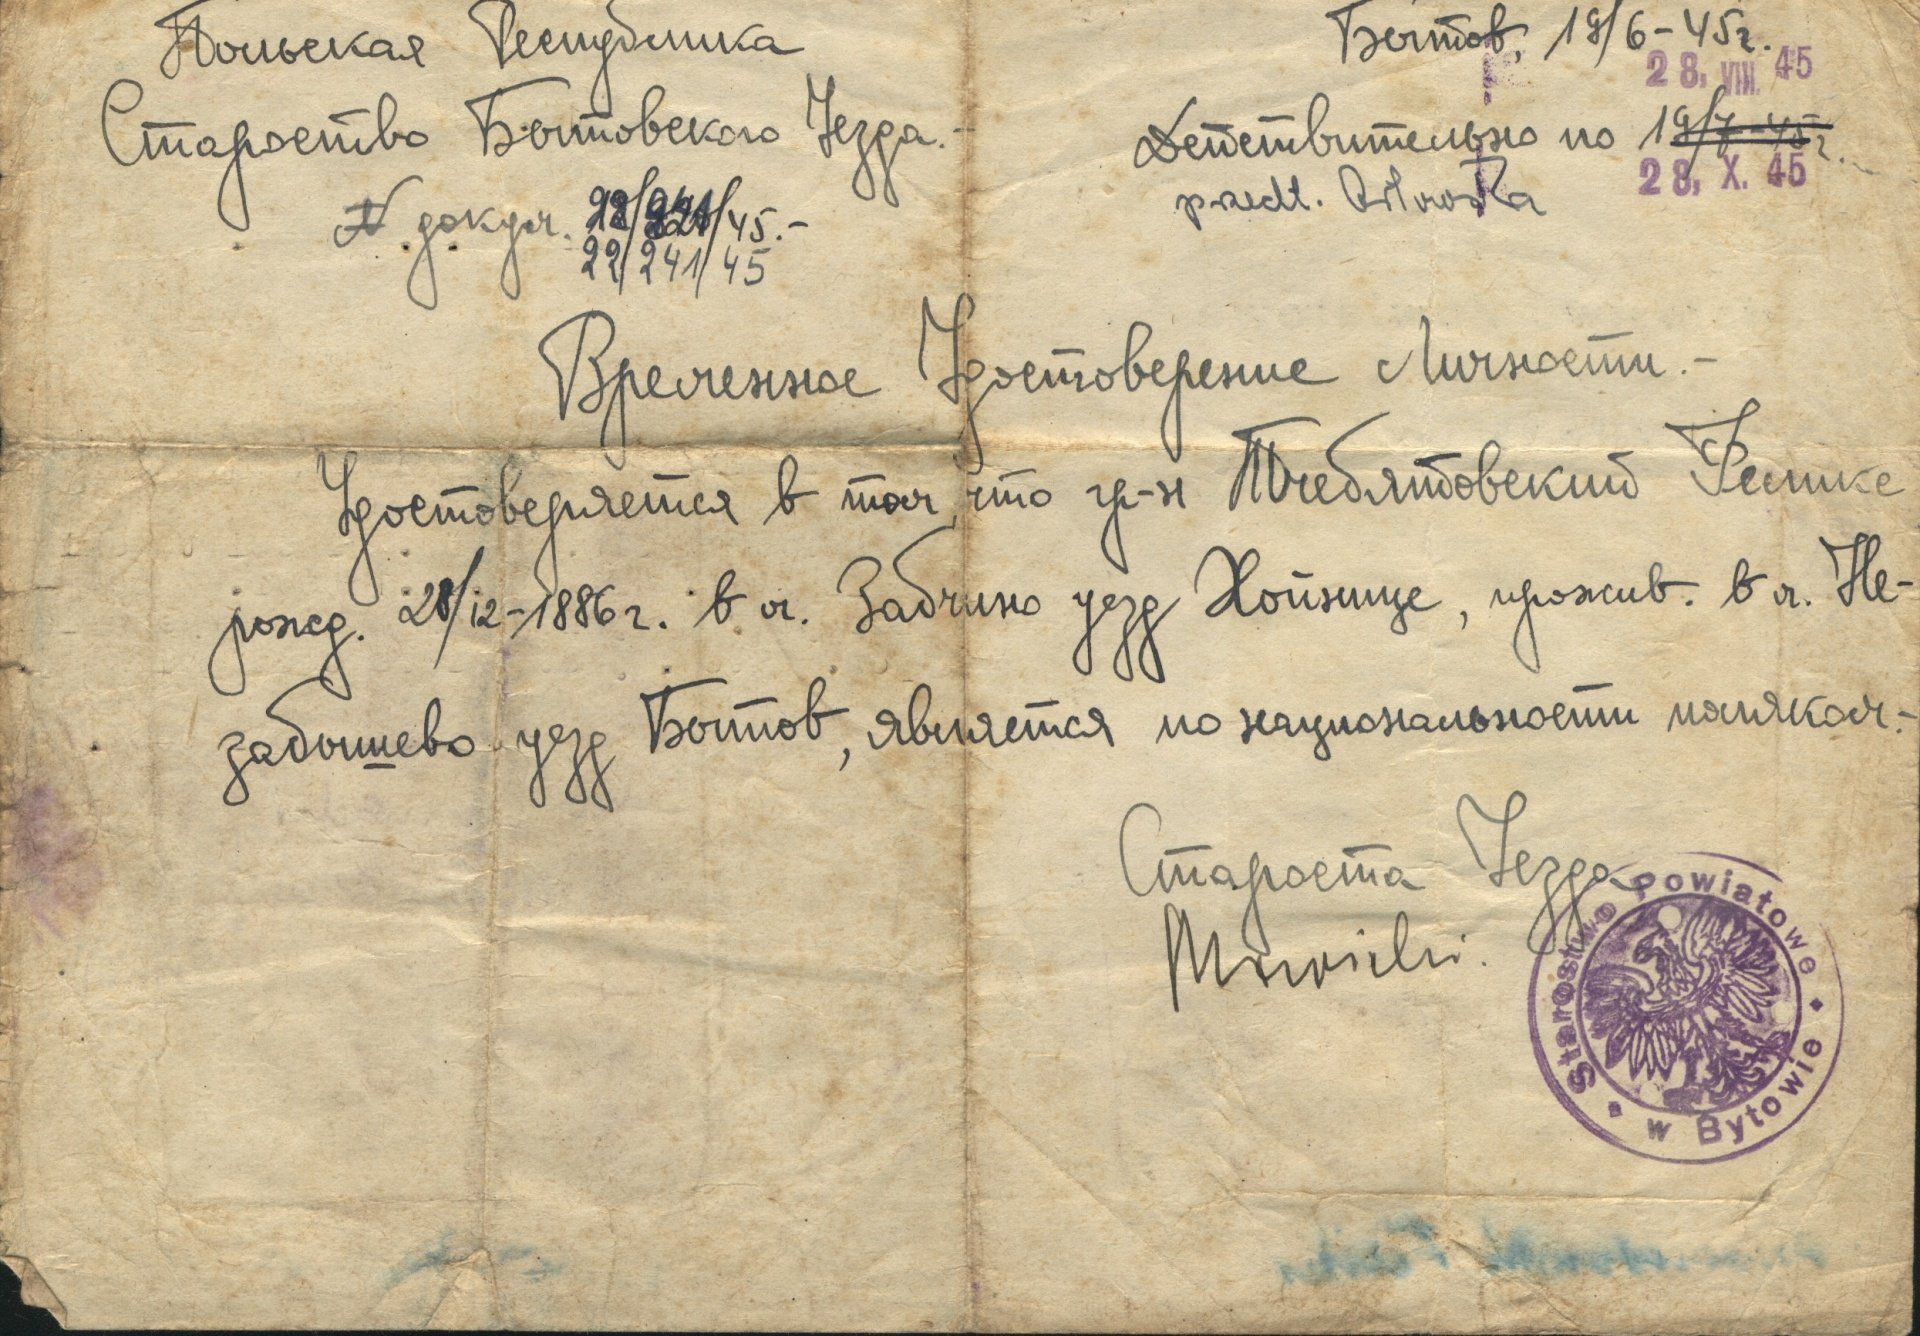 Польская Республика
Бытов, 19/6-45г.
28. VIII. 45
Староство Бытовского Уезда.-
Действительно по 19/7-45г.
28. X. 45
N докум. 22/241/45.-
22/241/45
Временное Удостоверение Личности.-
Удостоверяется в том, что гр-н Феликс
рожд. 28/12-1886г. в м. уезд Хойнице, прожив. в м. Не-
забышево уезд Бытов, является по национальности поляком.-
Староста Уезда
Starostwo Powiatowe
w Bytowie